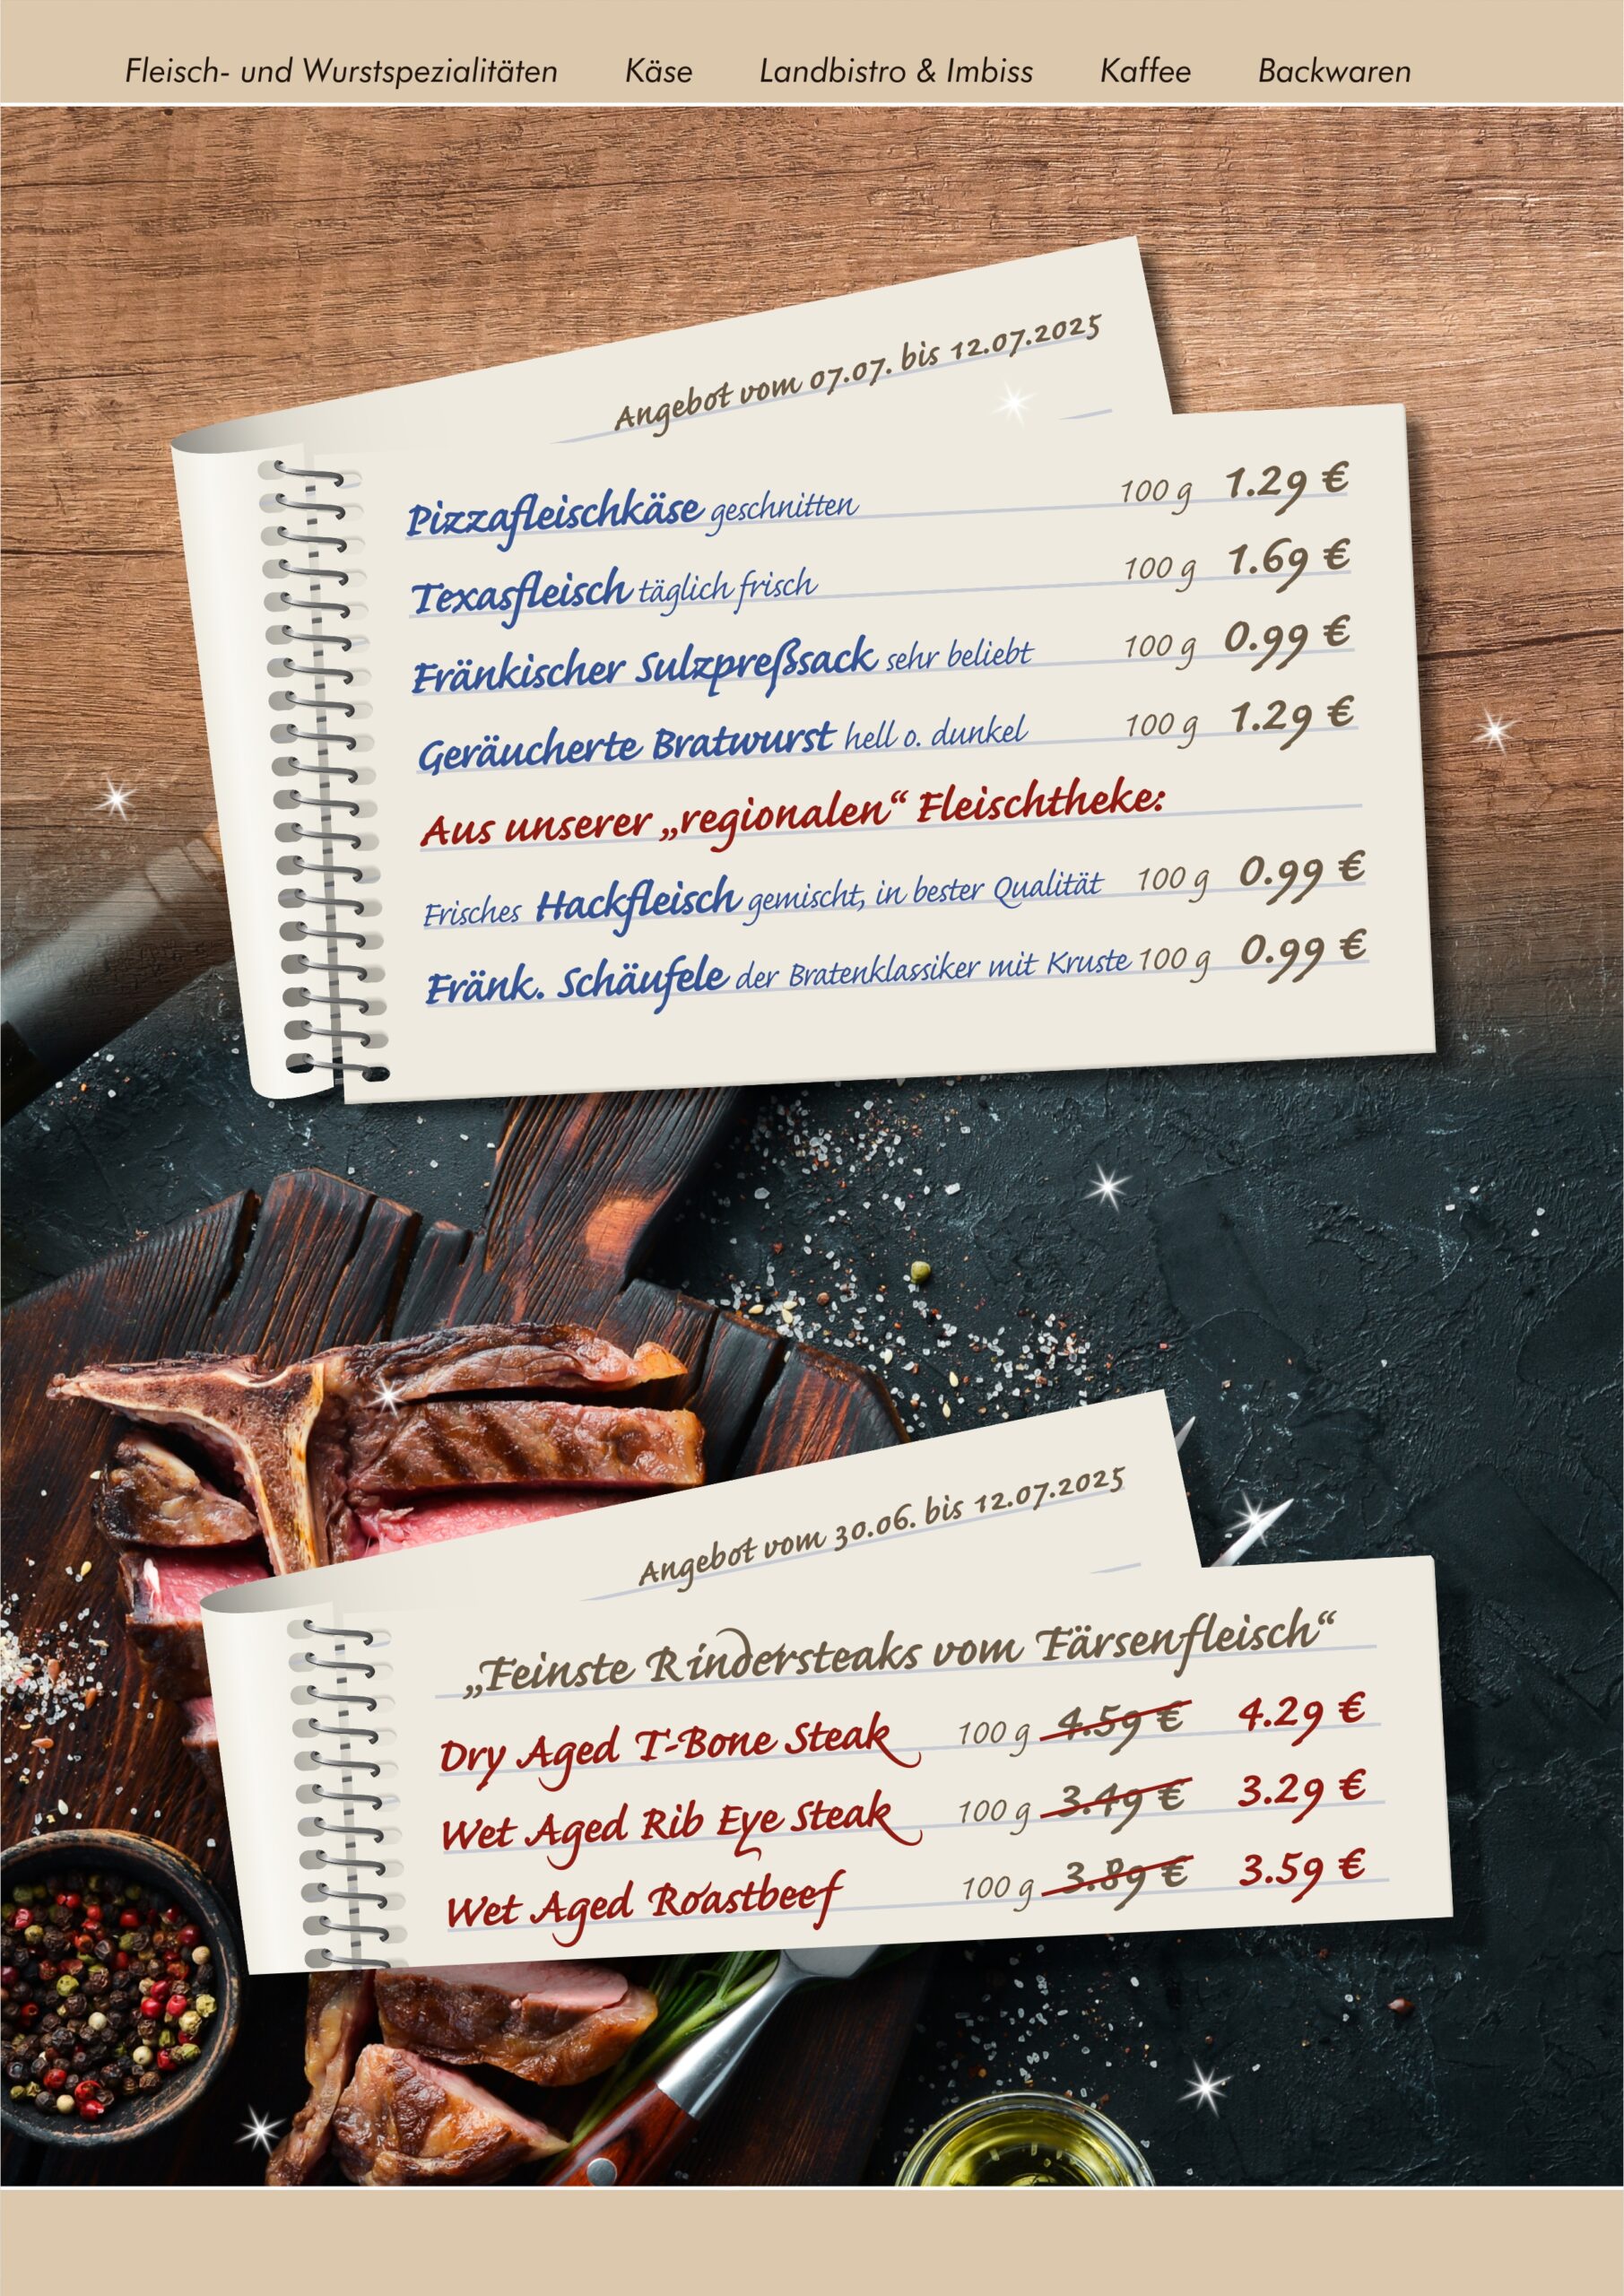 Fleisch- und Wurstspezialitäten Käse Landbistro & Imbiss Kaffee Backwaren
Angebot vom 07.07. bis 12.07.2025
Pizzafleischkäse geschnitten 100 g 1.29 €
Texasfleisch täglich frisch 100 g 1.69 €
Fränkischer Sulzpreßsack sehr beliebt 100 g 0.99 €
Geräucherte Bratwurst hell o. dunkel 100 g 1.29 €
Aus unserer „regionalen“ Fleischtheke:
Frisches Hackfleisch gemischt, in bester Qualität 100 g 0.99 €
Fränk. Schäufele der Bratenklassiker mit Kruste 100 g 0.99 €
Angebot vom 30.06. bis 12.07.2025
„Feinste Rindersteaks vom Färsenfleisch“
Dry Aged T-Bone Steak 100 g 4.59 € 4.29 €
Wet Aged Rib Eye Steak 100 g 3.49 € 3.29 €
Wet Aged Roastbeef 100 g 3.89 € 3.59 €